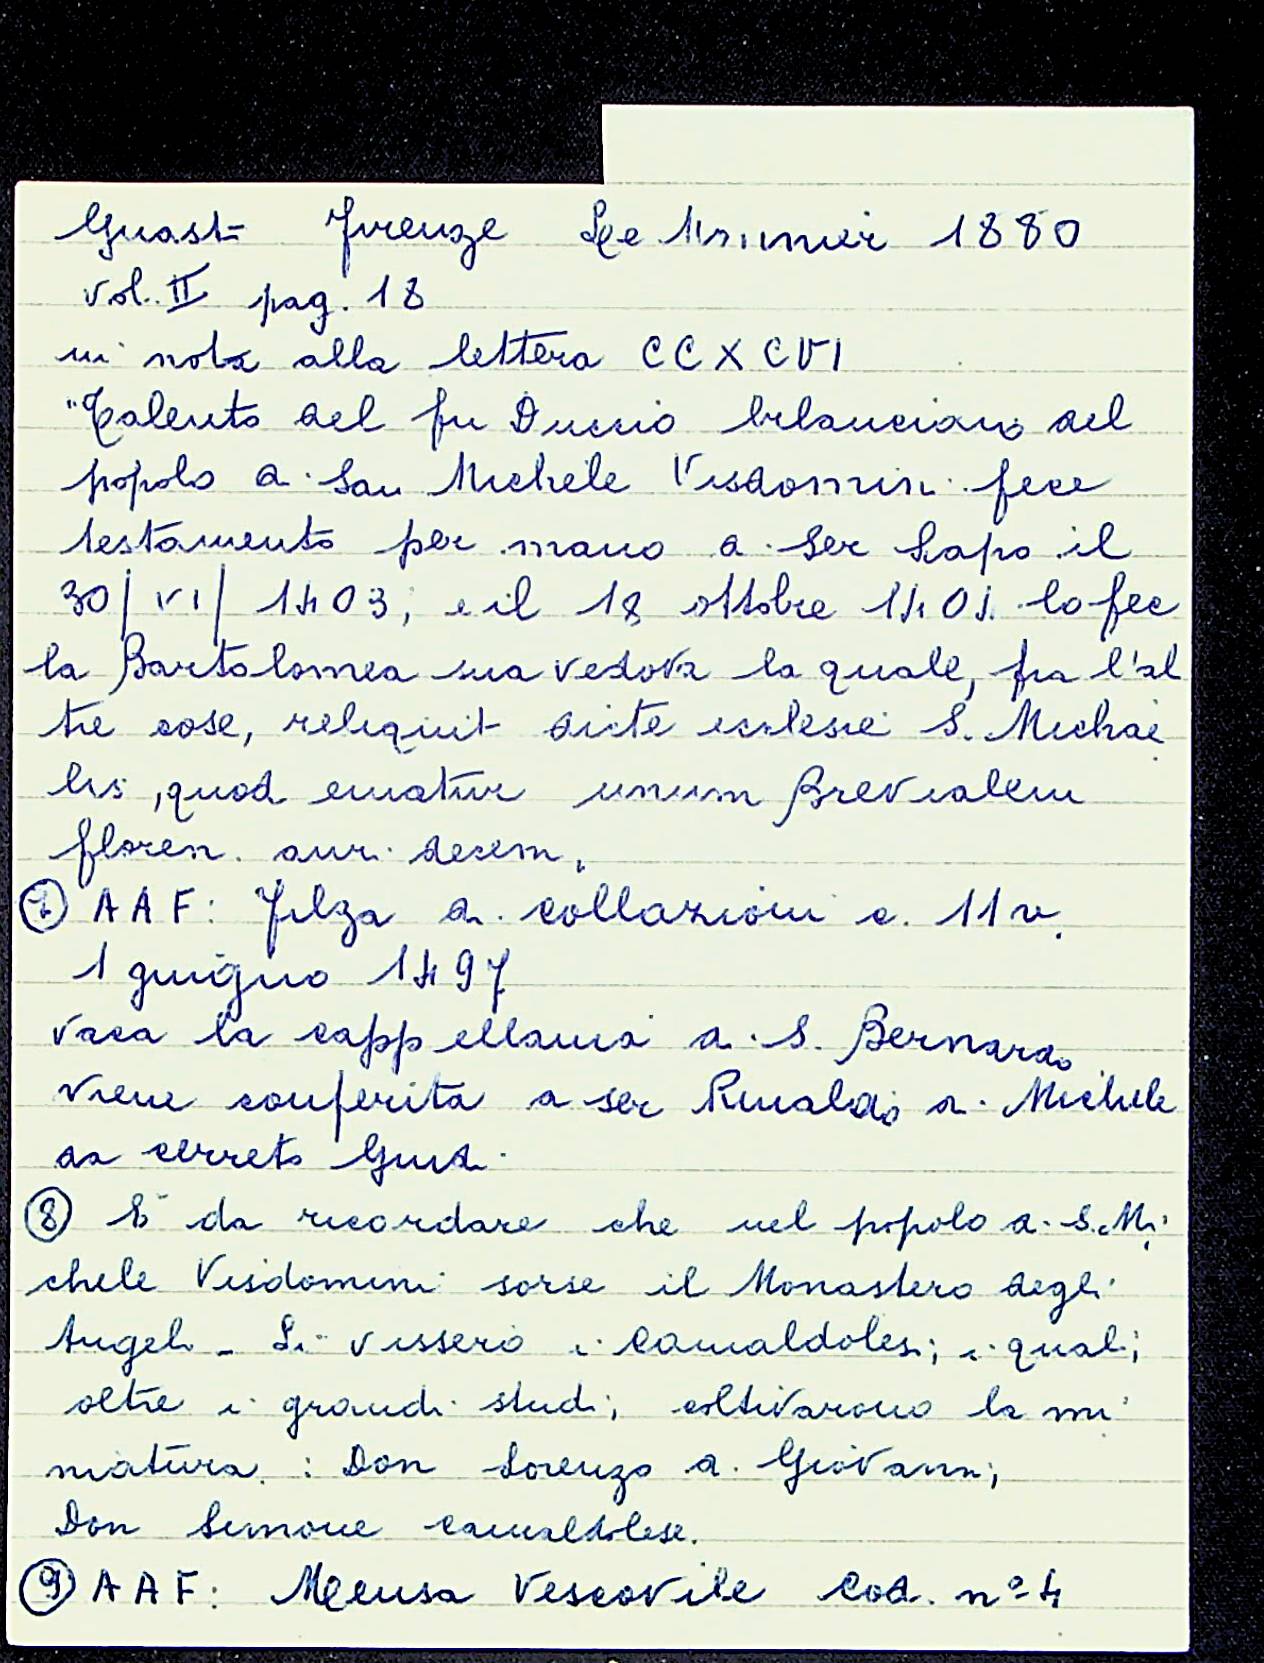 Guasti Firenze Le Monnier 1880
vol. II pag. 18
in nota alla lettera CCXCVI
"Talento del fu Duccio bilanciaio del
popolo di San Michele Visdomini fece
testamento per mano di Ser Lapo il
30/VI/1403; e il 18 ottobre 140 lo fec
la Bartolomea sua vedova la quale, fra l'al
tre cose, reliquit dicte ecclesie S. Michae
lis, quod ematur unum Brevialem
floren. auri decem.
⑦ AAF: Filza di collazioni c. 11 v.
1 giugno 1497
vaca la cappellania di S. Bernardo
viene conferita a ser Rinaldo di Michele
da Cerreto Guidi
⑧ È da ricordare che nel popolo di S. Mi
chele Visdomini sorse il Monastero degli
Angeli - Lì vissero i Camaldolesi; i quali,
oltre i grandi studi, coltivarono la mi
niatura: Don Lorenzo di Giovanni,
Don Simone camaldolese.
⑨ AAF: Mensa Vescovile Cod. n° 4